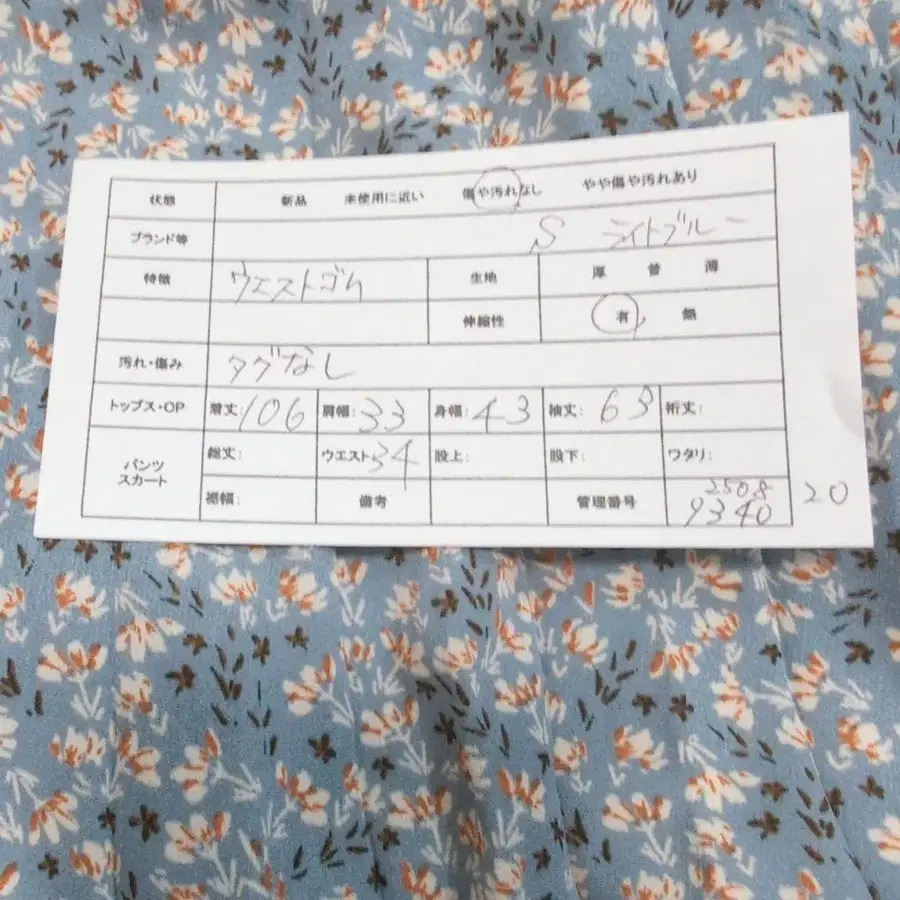 状態 新品 未使用に近い 傷や汚れなし やや傷や汚れあり
ブランド等 S ライトブルー
特徴 ウエストゴム 生地 厚 普 薄
伸縮性 有 無
汚れ・傷み タグなし
トップス・OP 着丈: 106 肩幅: 33 身幅: 43 袖丈: 63 裄丈:
パンツ スカート 総丈: ウエスト 34 股上: 股下: ワタリ:
裾幅: 備考 管理番号 2508 9340 20